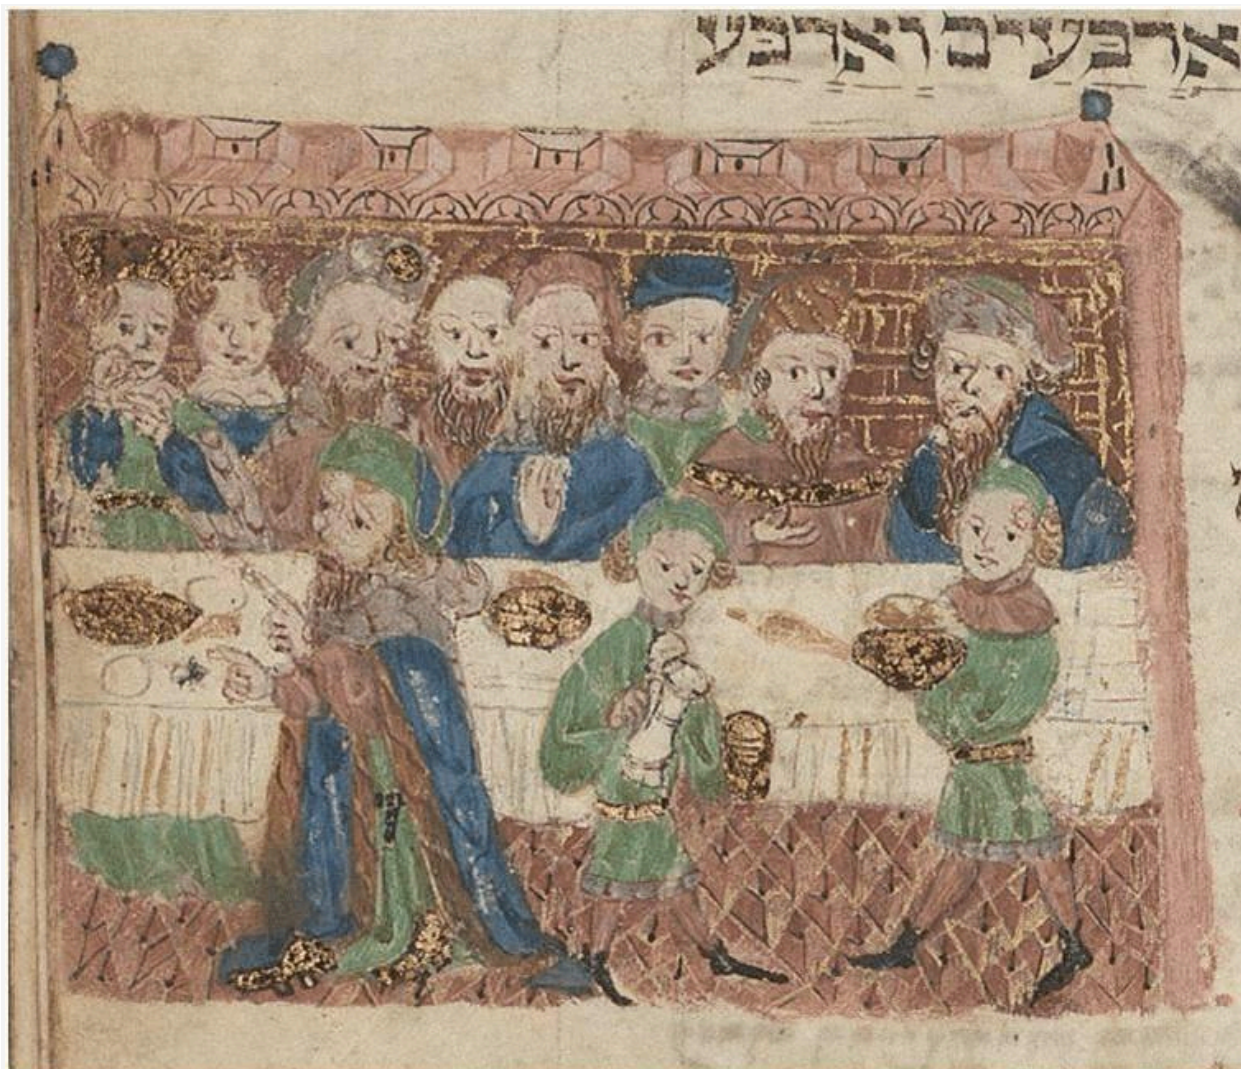 ארבעים וארבע